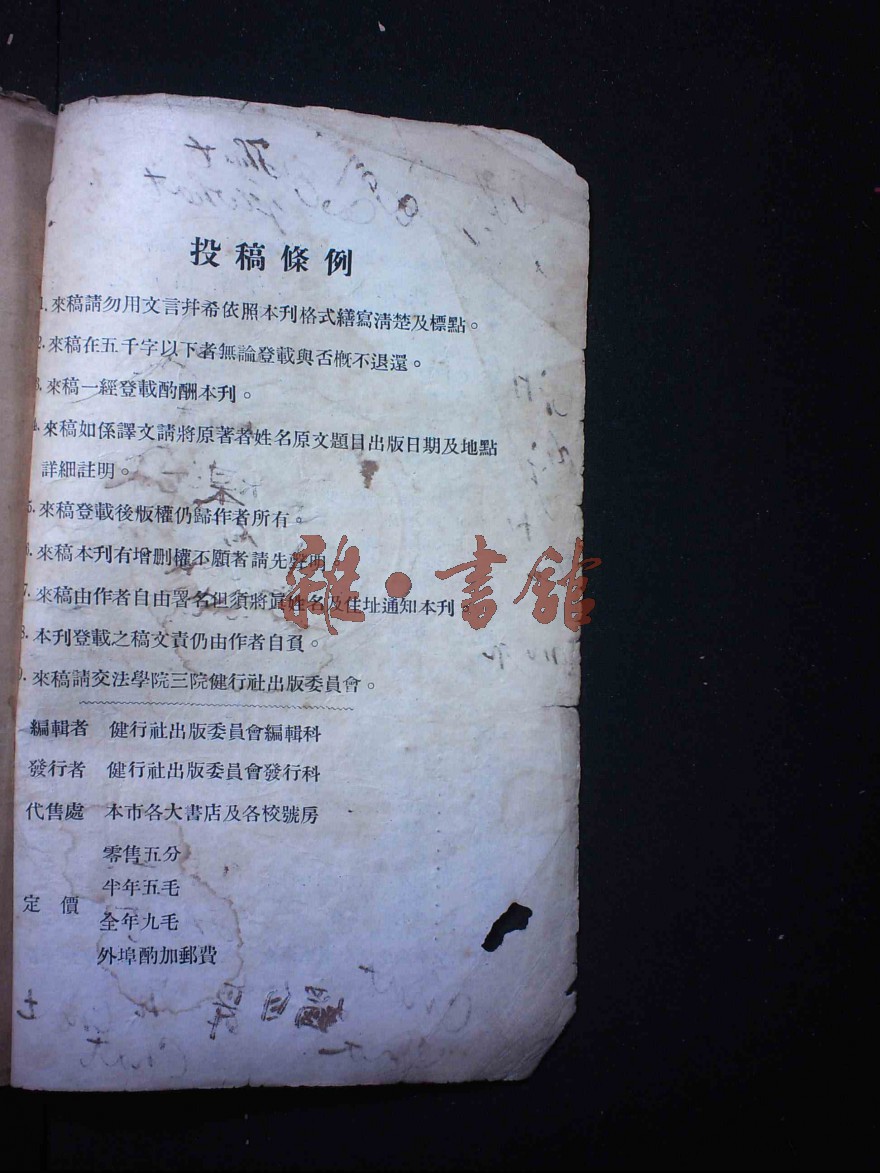 投稿條例
1. 來稿請勿用文言并希依照本刋格式繕寫淸楚及標點。
2. 來稿在五千字以下者無論登載與否槪不退還。
3. 來稿一經登載酌酬本刋。
4. 來稿如係譯文請將原著者姓名原文題目出版日期及地點
詳細註明。
5. 來稿登載後版權仍歸作者所有。
6. 來稿本刋有增删權不願者請先聲明
7. 來稿由作者自由署名但須將眞姓名及住址通知本刋。
8. 本刋登載之稿文責仍由作者自負。
9. 來稿請交法學院三院健行社出版委員會。
編輯者 健行社出版委員會編輯科
發行者 健行社出版委員會發行科
代售處 本市各大書店及各校號房
定價
零售五分
半年五毛
全年九毛
外埠酌加郵費
雜·書館